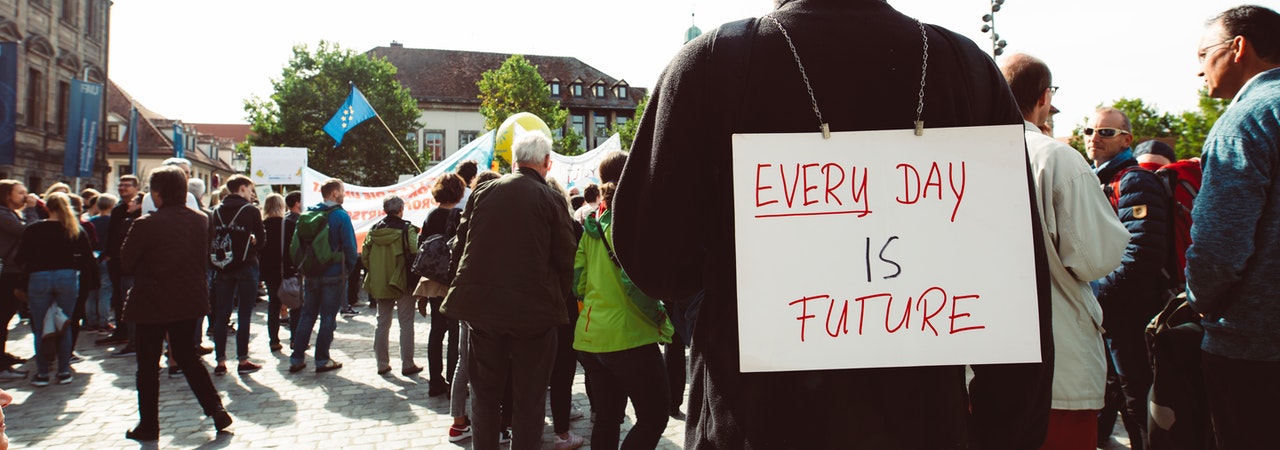 FAU
EVERY DAY
IS
FUTURE